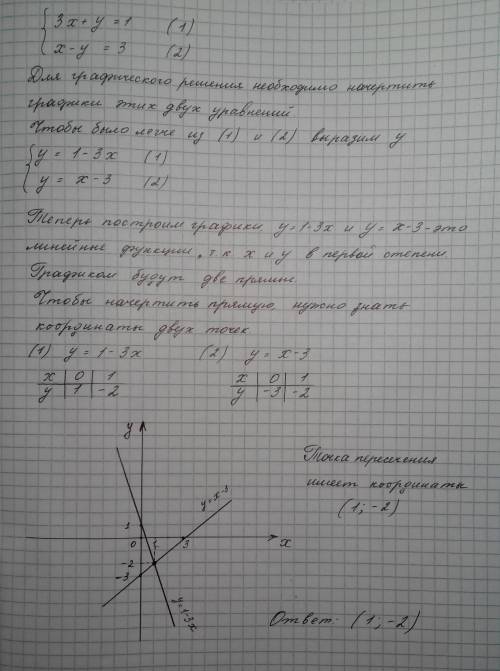 { 3x + y = 1 (1)
x - y = 3 (2)
Для графического решения необходимо начертить
графики этих двух уравнений
Чтобы было легче из (1) и (2) выразим y
{ y = 1 - 3x (1)
y = x - 3 (2)
Теперь построим графики y=1-3x и y=x-3 - это
линейные функции, т.к x и y в первой степени.
Графиком будут две прямые.
Чтобы начертить прямую, нужно знать
координаты двух точек
(1) y = 1 - 3x (2) y = x - 3
x | 0 | 1 x | 0 | 1
y | 1 | -2 y | -3 | -2
y
Точка пересечения
имеет координаты
y=x-3
(1; -2)
1
0 1 3 x
-2
-3
y=1-3x
Ответ: (1; -2)